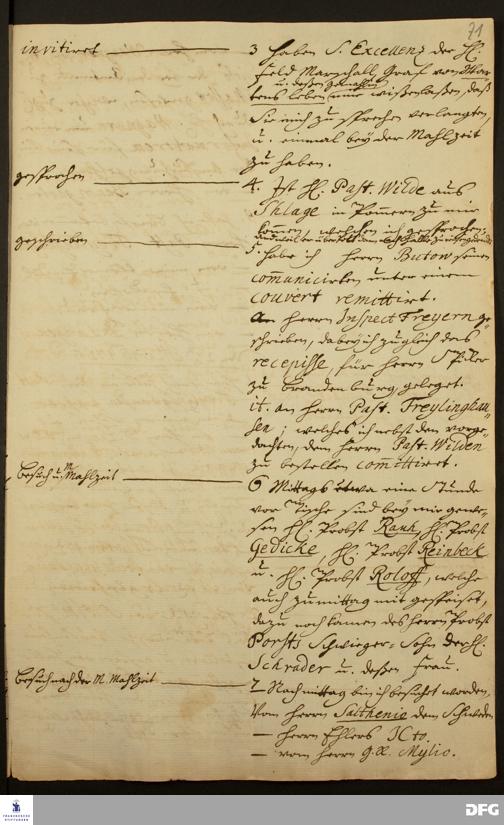 71
invitiret
3 haben S. Excellenz der H.
Feld Marschall, Graf von War-
u. deßen Gemahlin
tensleben mir wißen laßen, daß
Sie mich zu sprechen verlangten,
u. einmal bey der Mahlzeit
zu haben.
gesprochen
4. Ist H. Past. Wilde aus
Shlage in Pommern zu mir
komen, welchen ich gesprochen;
geschrieben
5. habe ich Herrn Butow seinen
communicirten unter einem
couvert remittirt.
An Herrn Inspect Freyern ge-
schrieben, dabey ich zugleich das
recepisse, für Herrn Stüler
zu Brandenburg, geleget.
it. an Herrn Past. Freylinghau-
sen; welches ich nebst dem vorge-
dachten, dem Herrn Past. Wilden
zu bestellen committiret.
Besuch u. M. Mahlzeit
6 Mittags etwa eine Stunde
vor Tische sind bey mir gewe-
sen H. Probst Rauh, H. Probst
Gedicke, H. Probst Reinbeck
u. H. Probst Roloff, welche
auch zu mittag mit gespeiset,
dazu noch kamen des Herrn Probst
Porsts Schwieger-Sohn der H.
Schrader u. deßen Frau.
Besuch nach der M. Mahlzeit
7 Nachmittag bin ich besucht worden.
Von Herrn Salthenio dem Schweden
— Herrn Ehlers ICto.
— vom Herrn Mylio.
FRANCKESCHE
STIFTUNGEN
DFG